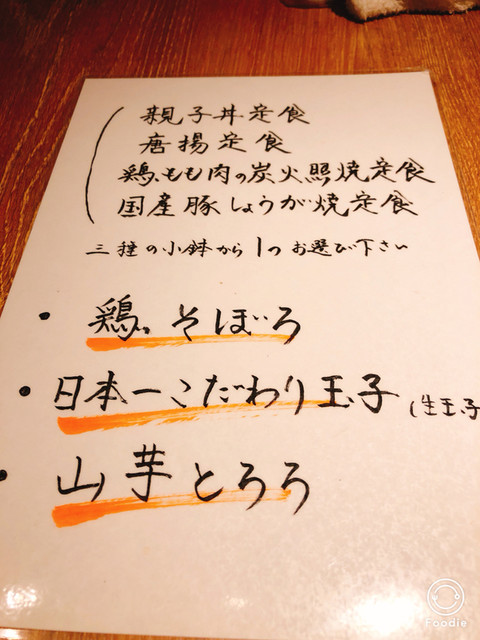 親子丼定食
唐揚定食
鶏もも肉の炭火照焼定食
国産豚しょうが焼定食
三種の小鉢から1つお選び下さい
・鶏そぼろ
・日本一こだわり玉子(生玉子
・山芋とろろ
Foodie